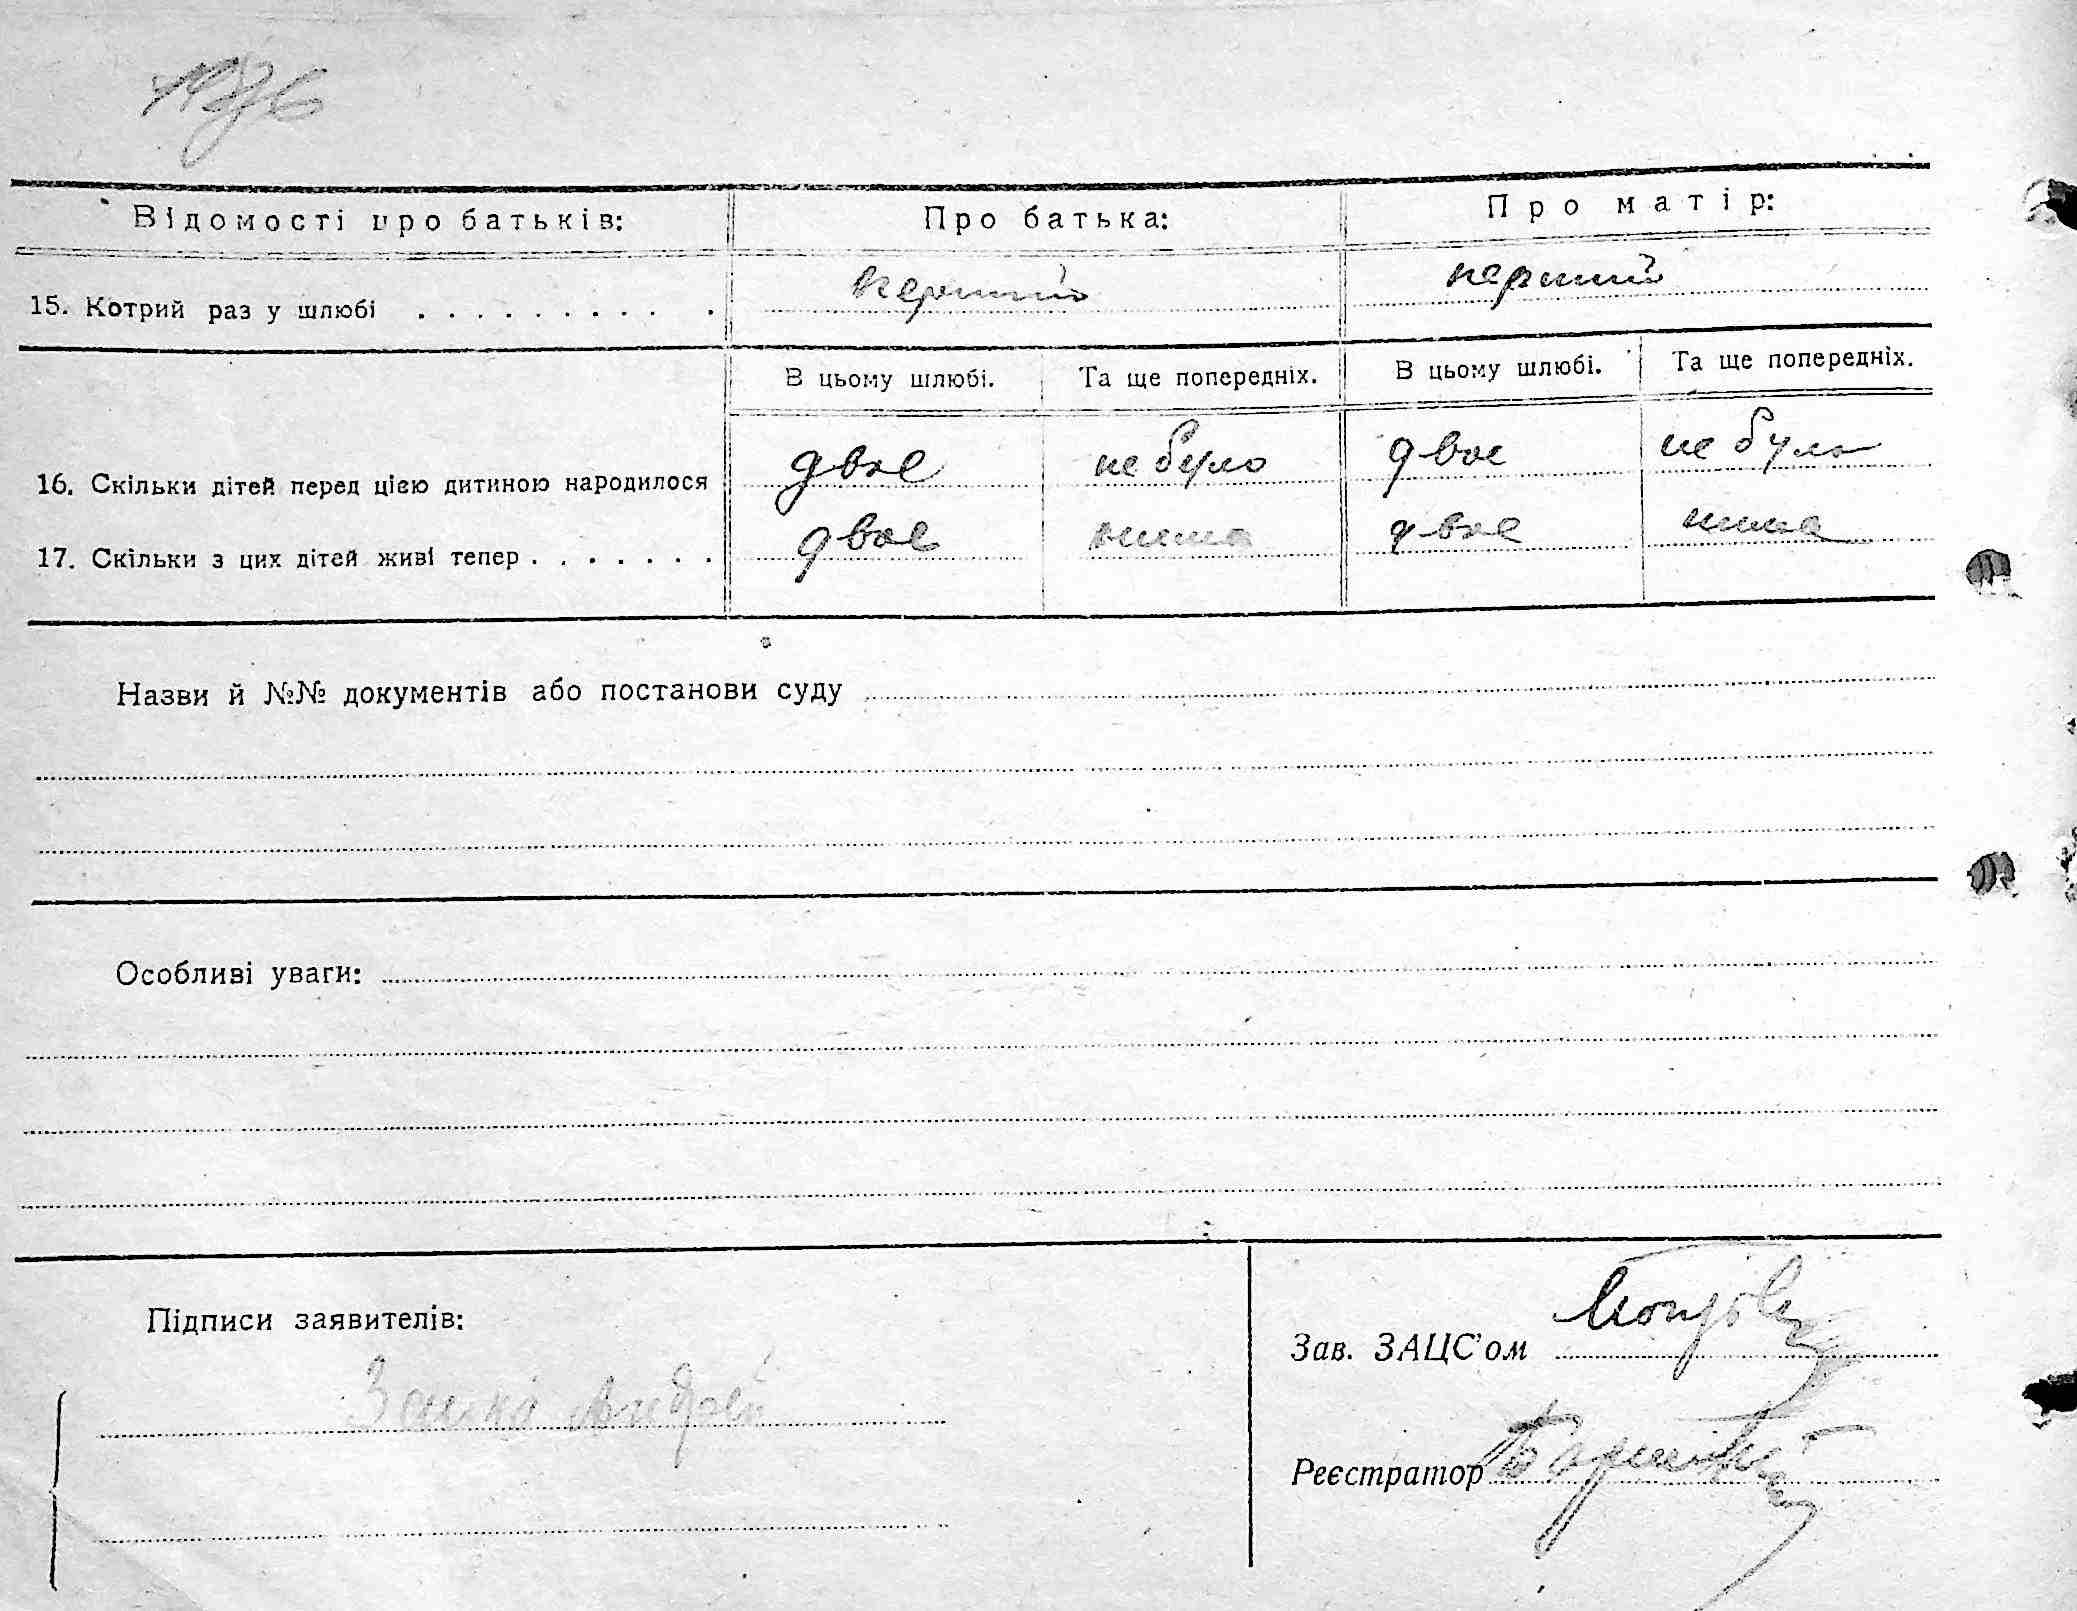 Відомості про батьків: Про батька: Про матір:
15. Котрий раз у шлюбі . . . . . . . . . . перший перший
В цьому шлюбі. Та ще попередніх. В цьому шлюбі. Та ще попередніх.
16. Скільки дітей перед цією дитиною народилося двое не було двое не було
17. Скільки з цих дітей живі тепер . . . . . . . двое нима двое нима
Назви й №№ документів або постанови суду
Особливі уваги:
Підписи заявителів:
Зав. ЗАЦС'ом
Андрей
Реєстратор